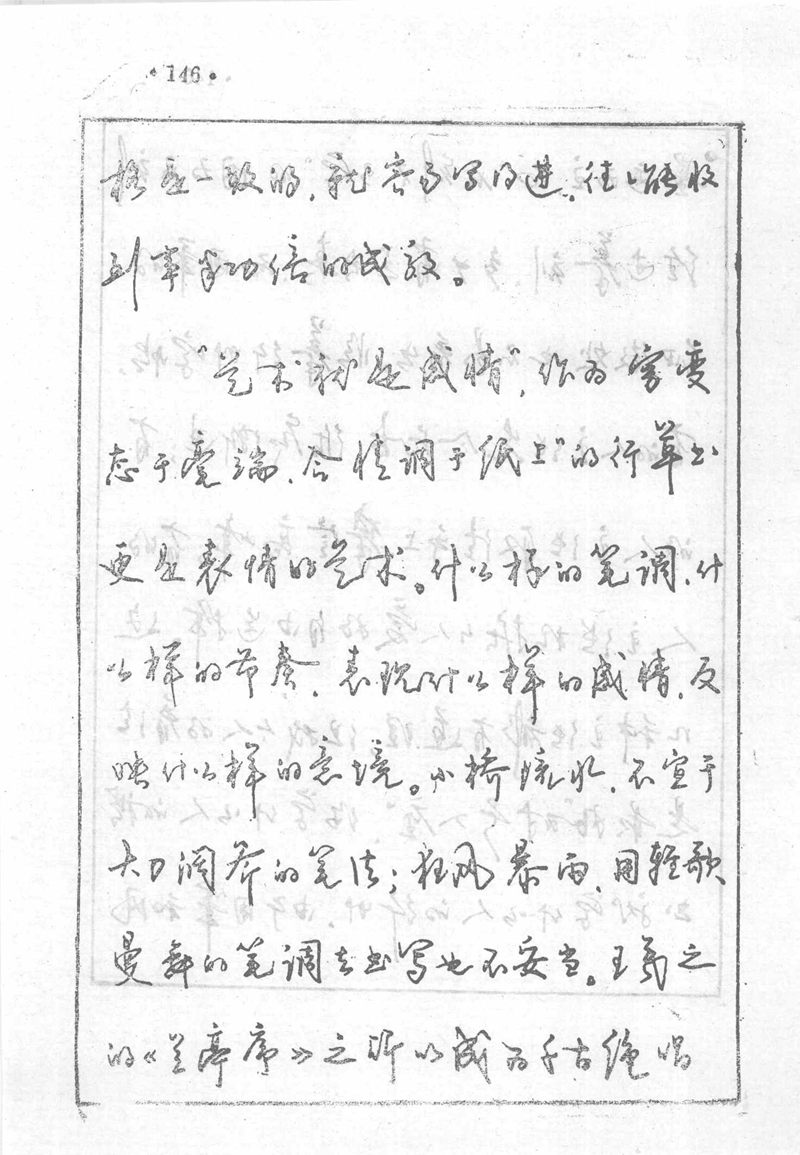 ·146·
格是一致的，就容易写得进，往往能收
到事半功倍的成效。
“艺术就是感情”，作为“穷变
态于毫端，合情调于纸上”的行草书
更是表情的艺术。什么样的笔调、什
么样的节奏，表现什么样的感情，反
映什么样的意境。小桥流水，不宜于
大刀阔斧的笔法；狂风暴雨，用轻歌
曼舞的笔调去书写也不妥当。王羲之
的《兰亭序》之所以成为千古绝唱